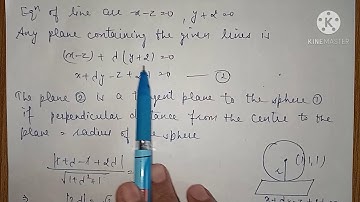 Eqⁿ of line are x-z=0, y+2=0
KINEMASTER
Any plane containing the given lines is
(x-z) + d(y+2)=0
x+dy-z+2d=0 — ②
The plane ② is a tangent plane to the sphere ①
if perpendicular distance from the centre to the
plane = radius of the sphere
|1+d-1+2d|
√1+d²+1
(1,1,1)
r
⇒
x+dy-z+2d=0